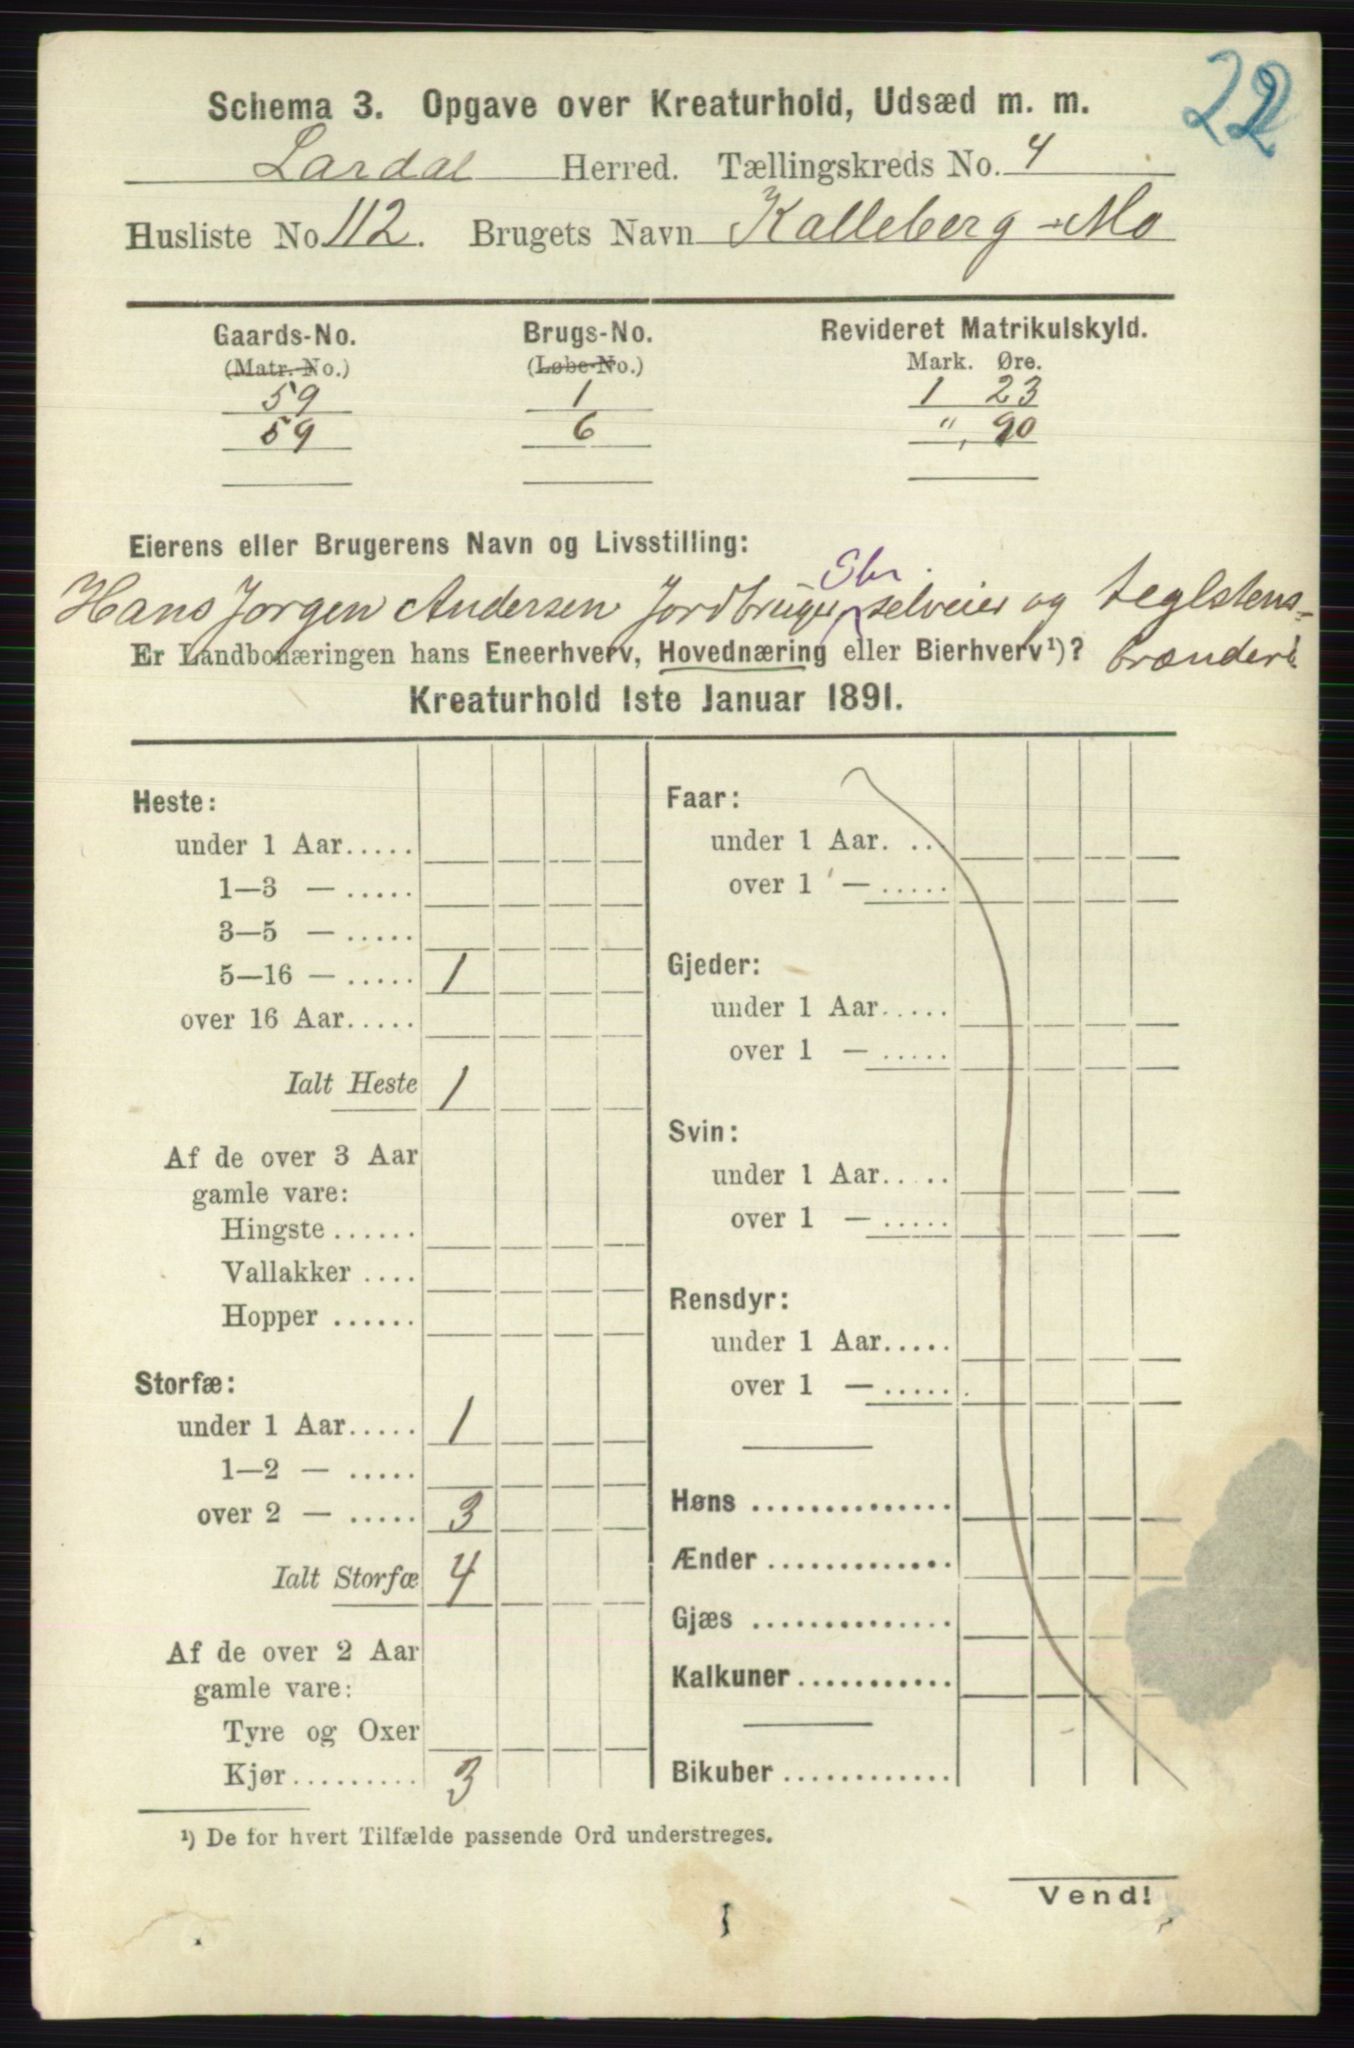 22
Schema 3. Opgave over Kreaturhold, Udsæd m. m.
Lardal Herred. Tællingskreds No. 4
Husliste No 112. Brugets Navn Kalleberg-Mo
Gaards-No. Brugs-No. Revideret Matrikulskyld.
(Matr. No.) (Løbe-No.) Mark. Øre.
59 1 1 23
59 6 ", 90
Eierens eller Brugerens Navn og Livsstilling:
Hans Jørgen Andersen Jordbruger selveier og teglstens-
Er Landbonæringen hans Eneerhverv, Hovednæring eller Bierhverv¹)? brænderi
Kreaturhold 1ste Januar 1891.
Heste:
under 1 Aar.....
1—3 — .....
3—5 — .....
5—16 — ..... 1
over 16 Aar.....
Ialt Heste 1
Af de over 3 Aar
gamle vare:
Hingste ......
Vallakker ....
Hopper ......
Storfæ:
under 1 Aar..... 1
1—2 — .....
over 2 — ..... 3
Ialt Storfæ 4
Af de over 2 Aar
gamle vare:
Tyre og Oxer
Kjør......... 3
Faar:
under 1 Aar. ..
over 1 — .....
Gjeder:
under 1 Aar.....
over 1 — .....
Svin:
under 1 Aar.....
over 1 — .....
Rensdyr:
under 1 Aar.....
over 1 — ......
Høns ..............
Ænder .............
Gjæs ..............
Kalkuner ...........
Bikuber ............
¹) De for hvert Tilfælde passende Ord understreges.
Vend!